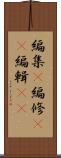 編集　編修
編輯